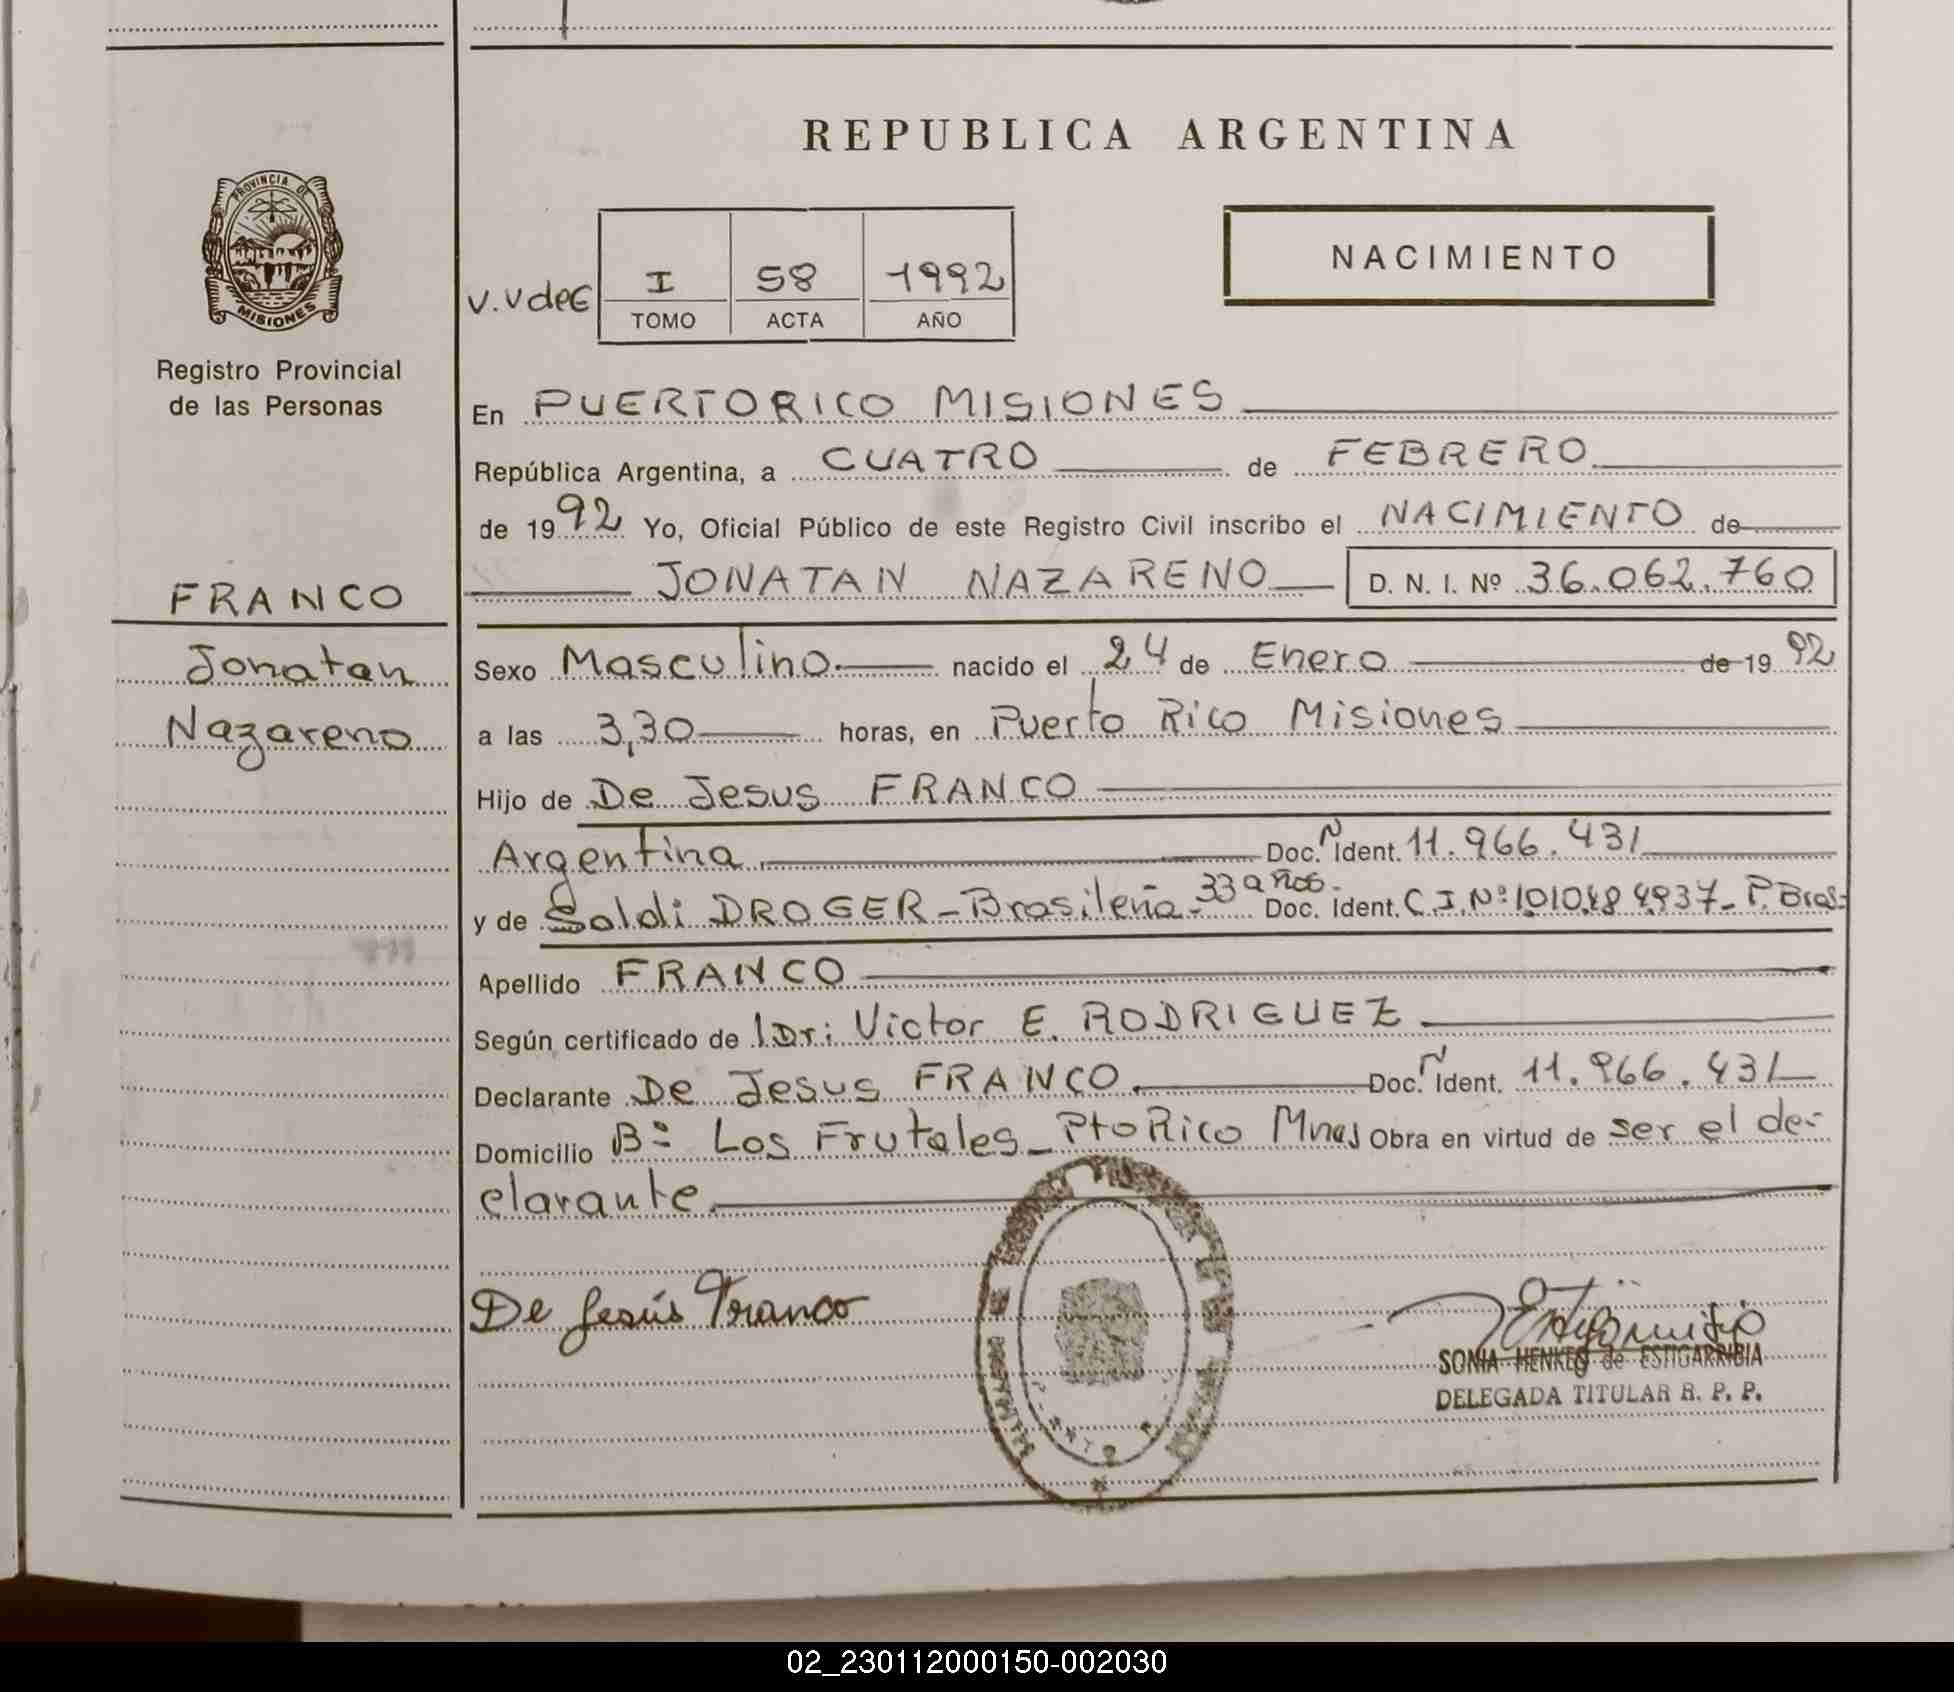 REPUBLICA ARGENTINA
PROVINCIA DE
MISIONES
Registro Provincial
de las Personas
NACIMIENTO
I 58 1992
TOMO ACTA AÑO
En PUERTO RICO MISIONES
República Argentina, a CUATRO de FEBRERO
de 1992 Yo, Oficial Público de este Registro Civil inscribo el NACIMIENTO de
JONATAN NAZARENO D. N. I. Nº 36.062.760
FRANCO
Jonatan
Nazareno
Sexo Masculino nacido el 24 de Enero de 19 92
a las 3,30 horas, en Puerto Rico Misiones
Hijo de De Jesus FRANCO
Argentina Doc. Ñ Ident. 11.966.431
y de Soldi DROGER - Brasileña - 33 años. Doc. Ident. C.I.Nº 1010484937 - P. Bras.
Apellido FRANCO
Según certificado de l Dr: Victor E. RODRIGUEZ
Declarante De Jesus FRANCO. Doc. Ñ Ident. 11.966.431
Domicilio Bº Los Frutales - Pto Rico Mnes Obra en virtud de ser el de-
clarante.
De Jesús Franco
SONIA HENKES de ESTIGARRIBIA
DELEGADA TITULAR R. P. P.
02_230112000150-002030